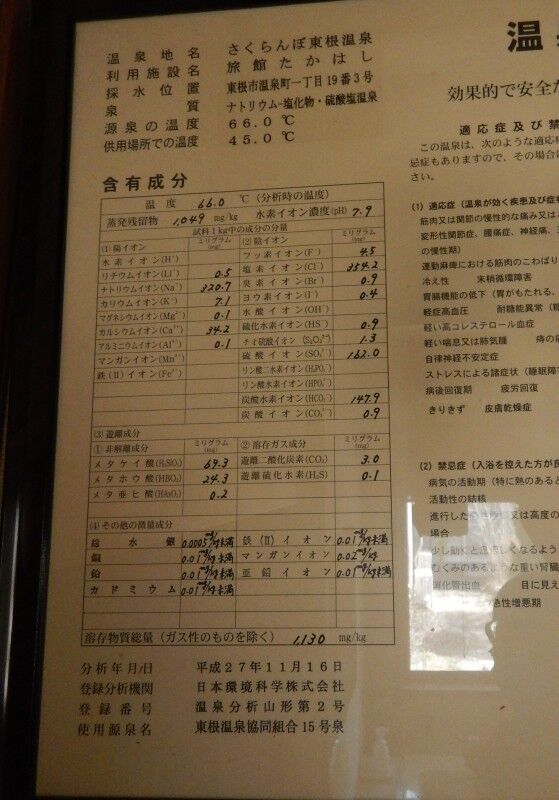 温泉地名 さくらんぼ東根温泉
利用施設名 旅館たかはし
採水位置 東根市温泉町一丁目19番3号
泉質 ナトリウム-塩化物・硫酸塩温泉
源泉の温度 66.0 ℃
供用場所での温度 45.0 ℃
含有成分
温度 66.0 ℃(分析時の温度)
蒸発残留物 1,049 mg/kg 水素イオン濃度(pH) 7.9
試料1kg中の成分の分量
(1)陽イオン ミリグラム(mg) (2)陰イオン ミリグラム(mg)
水素イオン(H⁺) フッ素イオン(F⁻) 4.5
リチウムイオン(Li⁺) 0.5 塩素イオン(Cl⁻) 354.2
ナトリウムイオン(Na⁺) 320.7 臭素イオン(Br⁻) 0.9
カリウムイオン(K⁺) 7.1 ヨウ素イオン(I⁻) 0.4
マグネシウムイオン(Mg²⁺) 0.1 水酸イオン(OH⁻)
カルシウムイオン(Ca²⁺) 34.2 硫化水素イオン(HS⁻) 0.9
アルミニウムイオン(Al³⁺) 0.1 チオ硫酸イオン(S₂O₃²⁻) 1.3
マンガンイオン(Mn²⁺) 硫酸イオン(SO₄²⁻) 162.0
鉄(II)イオン(Fe²⁺) リン酸二水素イオン(H₂PO₄⁻)
リン酸水素イオン(HPO₄²⁻)
炭酸水素イオン(HCO₃⁻) 147.9
炭酸イオン(CO₃²⁻) 0.9
(3)遊離成分
①非解離成分 ミリグラム(mg) ②溶存ガス成分 ミリグラム(mg)
メタケイ酸(H₂SiO₃) 69.3 遊離二酸化炭素(CO₂) 3.0
メタホウ酸(HBO₂) 24.3 遊離硫化水素(H₂S) 0.1
メタ亜ヒ酸(HAsO₂) 0.2
(4)その他の微量成分
総水銀 0.0005mg/kg未満 鉄(II)イオン 0.01mg/kg未満
銅 0.01mg/kg未満 マンガンイオン 0.02mg/kg
鉛 0.01mg/kg未満 亜鉛イオン 0.01mg/kg未満
カドミウム 0.01mg/kg未満
溶存物質総量(ガス性のものを除く) 1,130 mg/kg
分析年月/日 平成27年11月16日
登録分析機関 日本環境科学株式会社
登録番号 温泉分析山形第2号
使用源泉名 東根温泉協同組合15号泉
温
効果的で安全な
適応症及び禁
この温泉は、次のような適応症
忌症もありますので、その場合に
さい。
(1)適応症(温泉が効く疾患及び症状
筋肉又は関節の慢性的な痛み又は
変形性関節症、腰痛症、神経痛、
の慢性期)
運動麻痺における筋肉のこわばり
冷え性 末梢循環障害
胃腸機能の低下(胃がもたれる、
軽症高血圧 耐糖能異常(糖
軽い高コレステロール血症
軽い喘息又は肺気腫 痔の痛
自律神経不安定症
ストレスによる諸症状(睡眠障害
病後回復期 疲労回復
きりきず 皮膚乾燥症
(2)禁忌症(入浴を控えた方が良
病気の活動期(特に熱のあると
活動性の結核
進行した 又は高度の
場合
少し動くと 苦しくなるよう
むくみのあるような重い腎臓
消化管出血 目に見え
急性増悪期